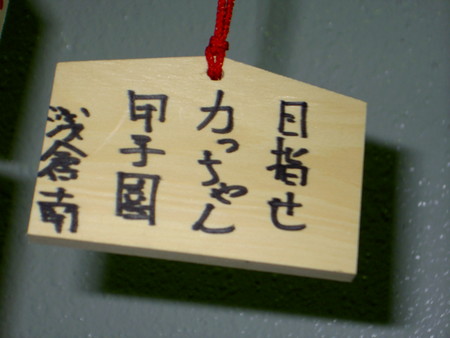 目指せ
カっちゃん
甲子園
浅倉南